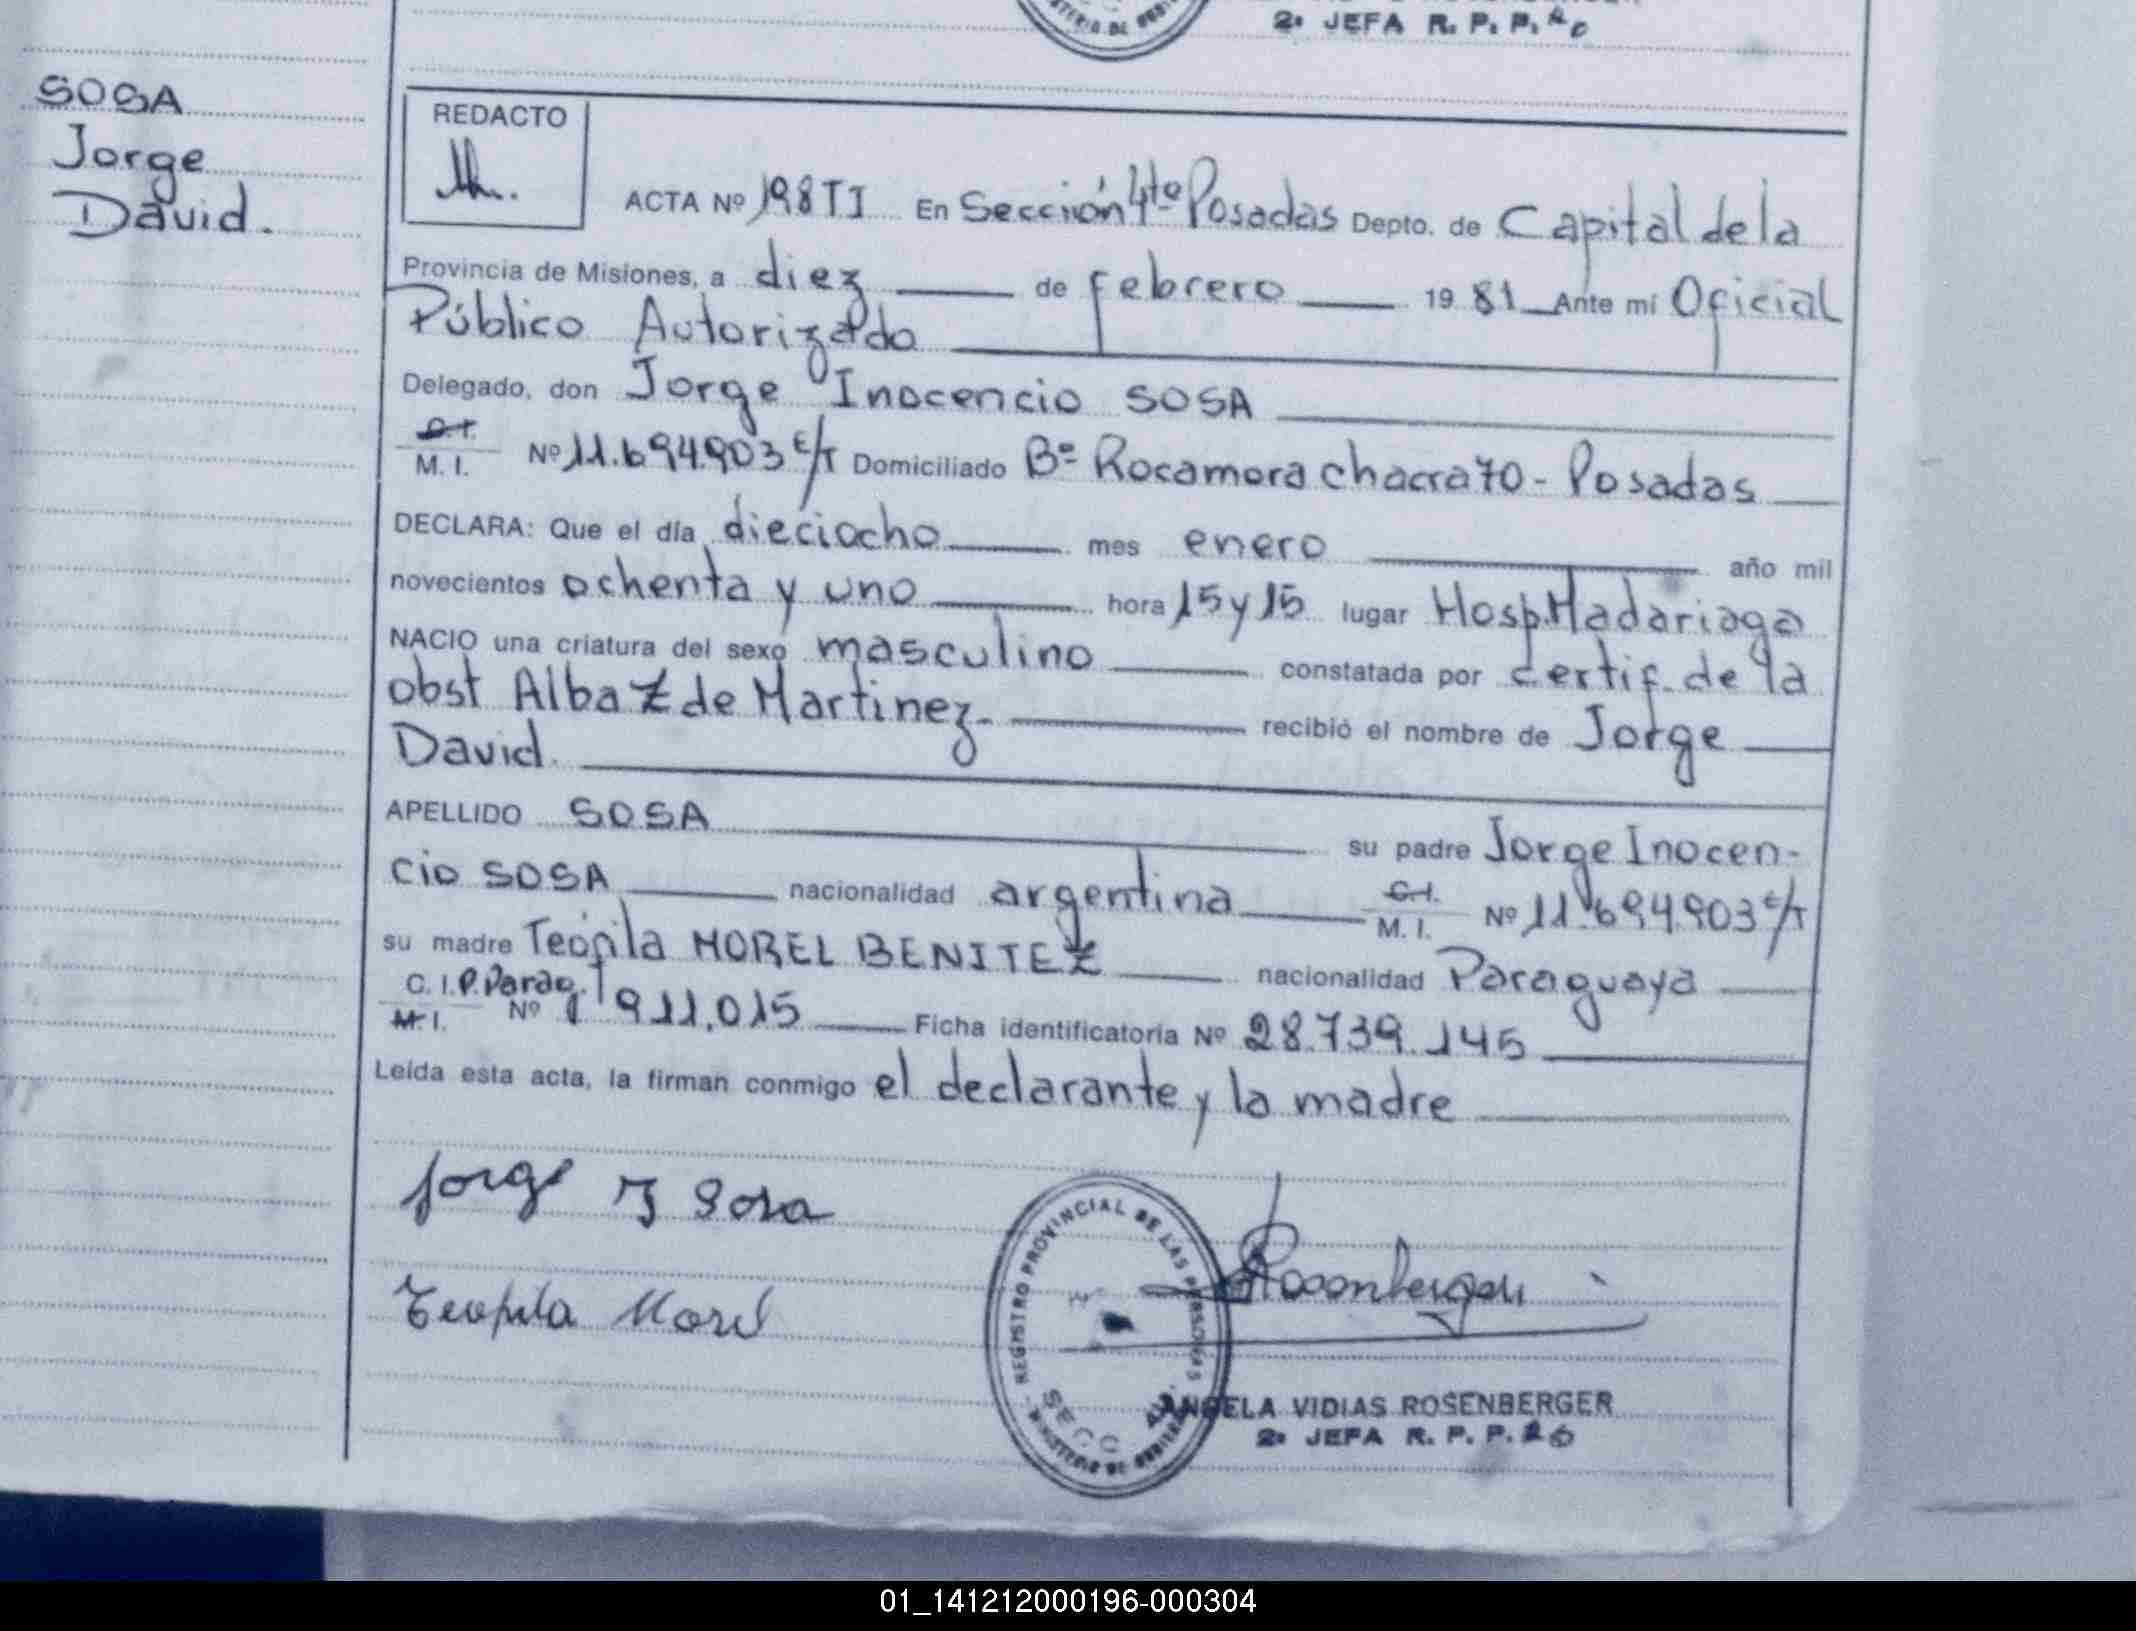 2ª JEFA R. P. P.
SOSA
Jorge
David.
REDACTO
ACTA Nº 198 TI En Sección 4tª Posadas Depto. de Capital de la
Provincia de Misiones, a diez de febrero 1981 Ante mí Oficial
Público Autorizado
Delegado, don Jorge Inocencio SOSA
C.I.
M. I. Nº 11.694.903 E/T Domiciliado Bº Rocamora chacra 70 - Posadas
DECLARA: Que el día dieciocho mes enero año mil
novecientos ochenta y uno hora 15 y 15 lugar Hosp. Madariaga
NACIO una criatura del sexo masculino constatada por certif. de la
obst Alba Z de Martinez. recibió el nombre de Jorge
David.
APELLIDO SOSA su padre Jorge Inocen-
cio SOSA nacionalidad argentina C.I. M. I. Nº 11.694.903 E/T
su madre Teófila MOREL BENITEZ nacionalidad Paraguaya
C. I. P. Parag.
M. I. Nº 911.015 Ficha identificatoria Nº 28.739.145
Leída esta acta, la firman conmigo el declarante y la madre
Jorge I Sosa
Teofila Morel
REGISTRO PROVINCIAL DE LAS PERSONAS
SECC 4ta.
MINISTERIO DE GOBIERNO
Rosenberger
ANGELA VIDIAS ROSENBERGER
2ª JEFA R. P. P.
01_141212000196-000304